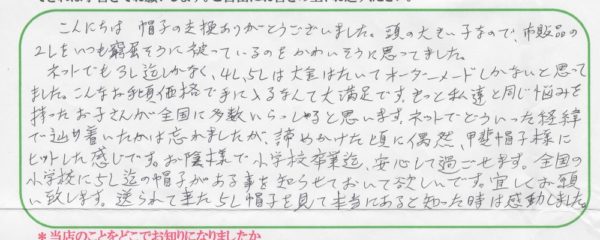 こんにちは 帽子の支援ありがとうございました。頭の大きい子なので、市販品の
2Lをいつも窮屈そうに被っているのをかわいそうに思ってました。
ネットでも3L迄しかなく、4L,5Lは大金はたいてオーダーメードしかないと思って
ました。こんなお手頃価格で手に入るなんて大満足です。きっと私達と同じ悩みを
持ったお子さんが全国に多数いらっしゃると思います。ネットでどういった経緯
で辿り着いたかは忘れましたが、諦めかけた頃に偶然、甲斐帽子様に
ヒットした感じです。お陰様で小学校卒業迄、安心して過ごせます。全国の
小学校に5L迄の帽子がある事を知らせておいて欲しいです。宜しくお願
い致します。送られて来た5L帽子を見て本当にあると知った時は感動しました。
*当店のことをどこでお知りになりましたか